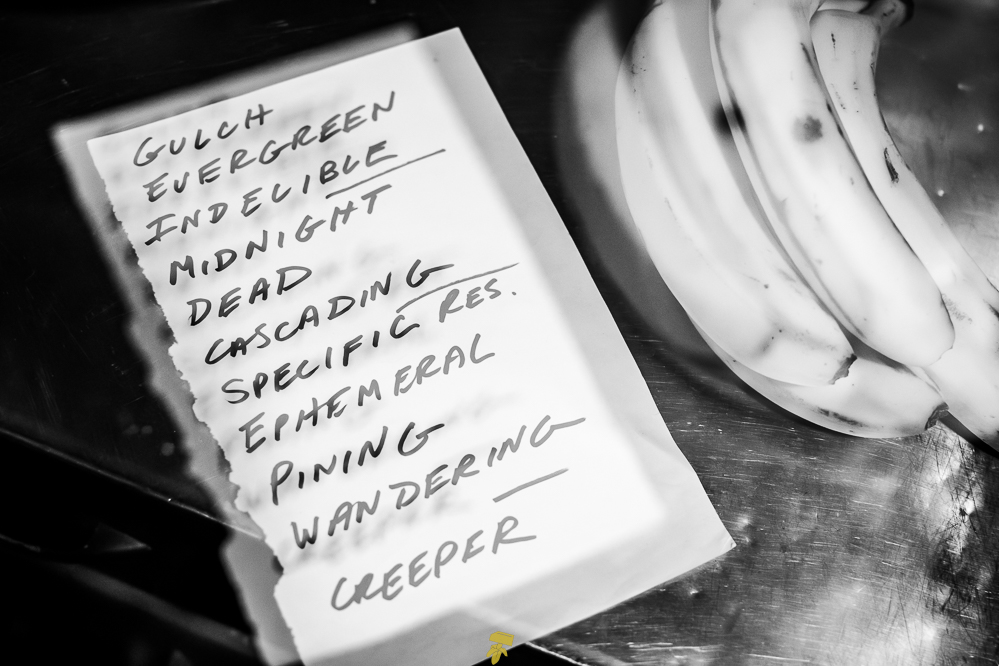 GULCH
EVERGREEN
INDELIBLE
MIDNIGHT
DEAD
CASCADING
SPECIFIC RES.
EPHEMERAL
PINING
WANDERING
CREEPER